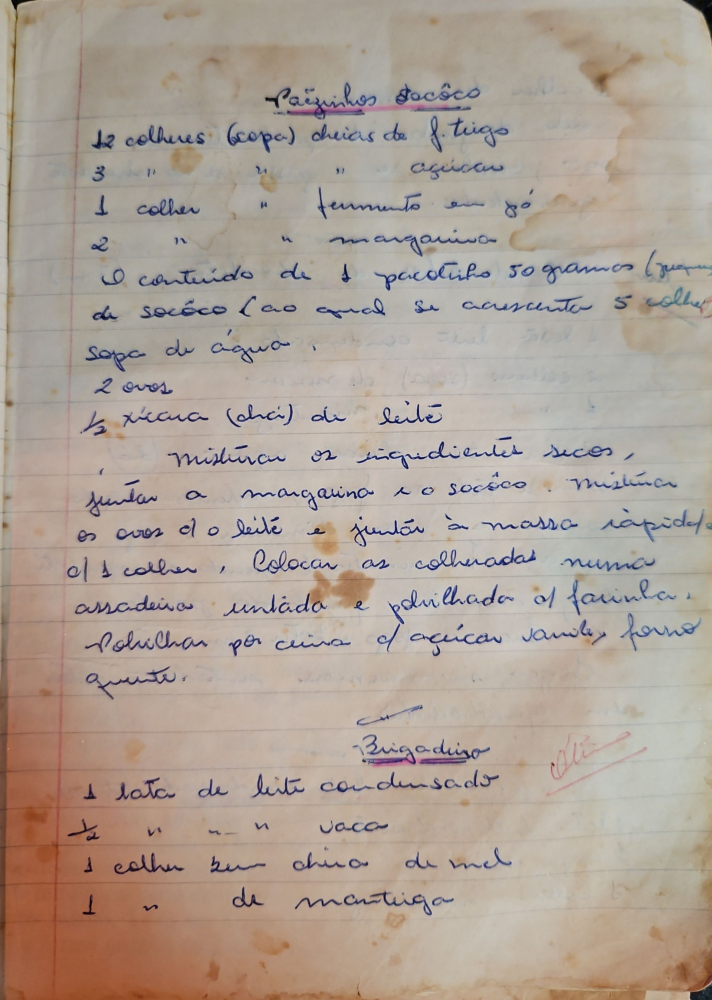 Pãezinhos Socôco
12 colheres (sopa) cheias de f. trigo
3 " " " açúcar
1 colher " fermento em pó
2 " " margarina
O conteúdo de 1 pacotinho 50 gramos
de socôco (ao qual se acrescenta 5 colher
sopa de água.
2 ovos
1/2 xícara (chá) de leite
Misturar os ingredientes secos,
juntar a margarina e o socôco. Misturar
os ovos c/ o leite e juntar à massa
c/ 1 colher. Colocar as colheradas numa
assadeira untada e polvilhada c/ farinha.
Polvilhar por cima c/ açúcar forno
quente.
Brigadeiro
1 lata de leite condensado
1/2 " " " vaca
1 colher bem cheia de mel
1 " de manteiga